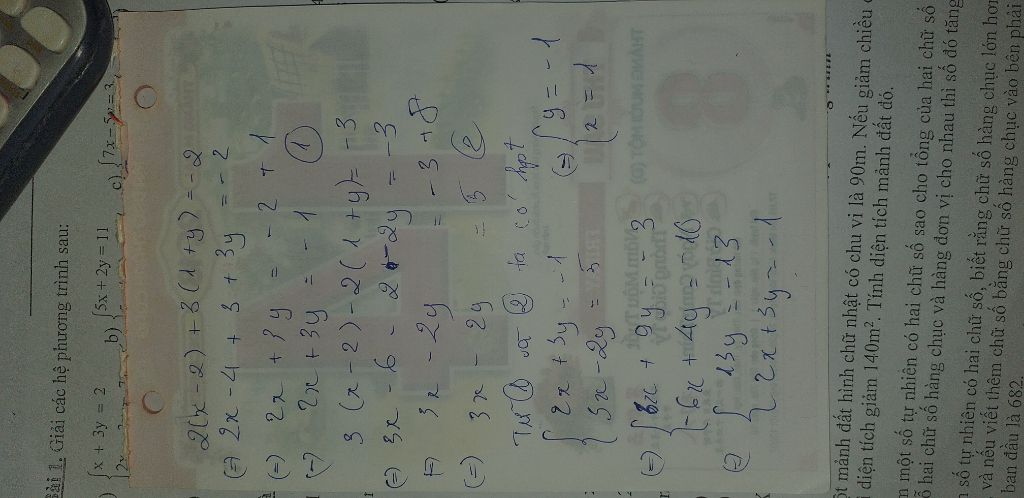 Bài 1. Giải các hệ phương trình sau:
{x + 3y = 2
b) {5x + 2y = 11
c) {7x - 5y = 3
2(x - 2) + 3(1 + y) = -2
(=) 2x - 4 + 3 + 3y = -2
(=) 2x + 3y = -2 + 1
(=) 2x + 3y = -1 (1)
3(x - 2) - 2(1 + y) = -3
(=) 3x - 6 - 2 - 2y = -3
(=) 3x - 2y = -3 + 8
(=) 3x - 2y = 5 (2)
Từ (1) và (2) ta có hpt
{2x + 3y = -1
{3x - 2y = 5
(=) {6x + 9y = -3
{-6x + 4y = -10
(=) {13y = -13
{2x + 3y = -1
(=) {y = -1
{x = 1
một mảnh đất hình chữ nhật có chu vi là 90m. Nếu giảm chiều
diện tích giảm 140m². Tính diện tích mảnh đất đó.
một số tự nhiên có hai chữ số sao cho tổng của hai chữ số
hai chữ số hàng chục và hàng đơn vị cho nhau thì số đó tăng
số tự nhiên có hai chữ số, biết rằng chữ số hàng chục lớn hơn
và nếu viết thêm chữ số bằng chữ số hàng chục vào bên phải
ban đầu là 682.